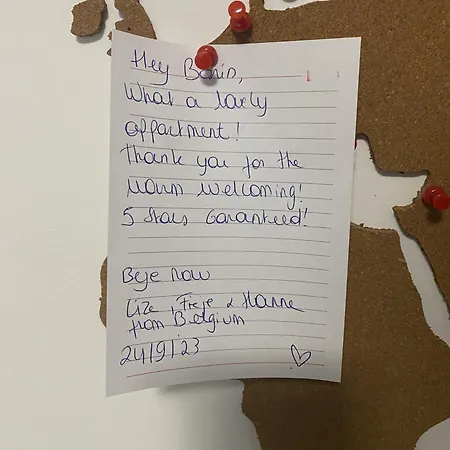 Hey Banin,
What a lovely
appartment!
Thank you for the
warm welcoming!
5 stars Garanteed!
Beye now
Lize, Freje & Hanne
from Belgium
24/9/23